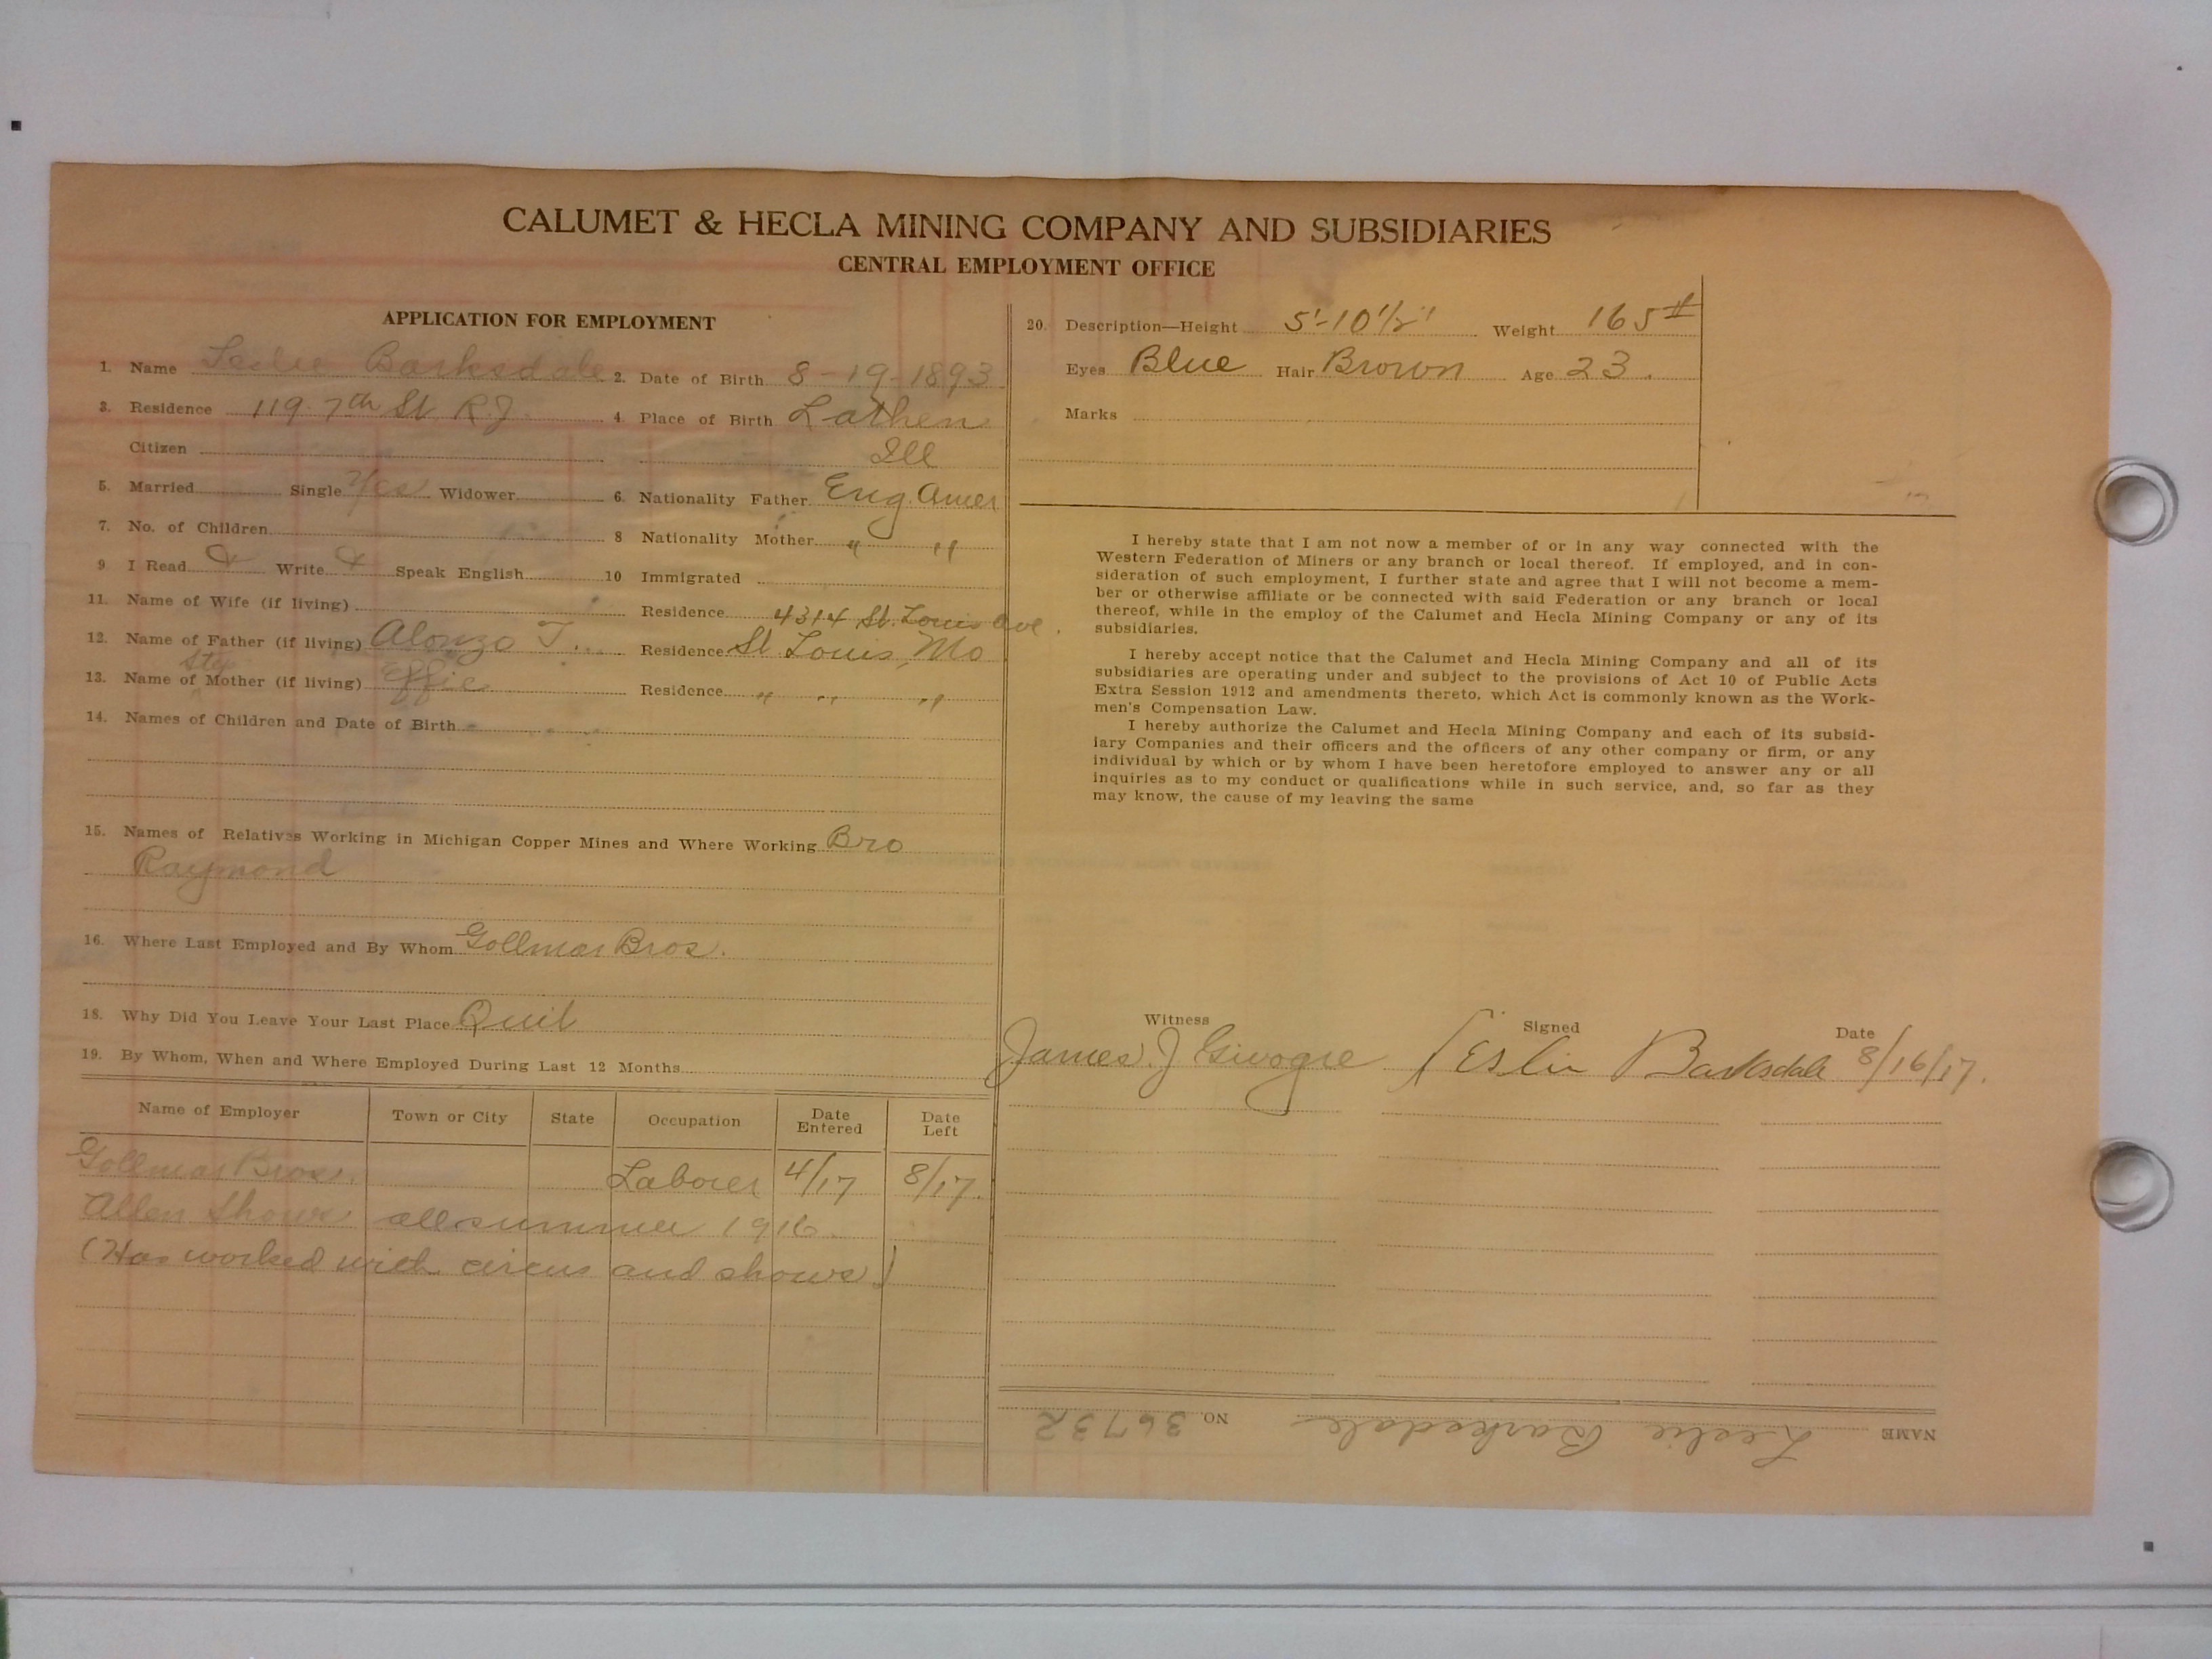 CALUMET & HECLA MINING COMPANY AND SUBSIDIARIES
CENTRAL EMPLOYMENT OFFICE
APPLICATION FOR EMPLOYMENT
1. Name Leslie Barksdale 2. Date of Birth 8-19-1893
3. Residence 119-7th St R.J. 4. Place of Birth Lathen
Citizen Ill
5. Married Single Yes Widower 6. Nationality Father Eng. Amer
7. No. of Children 8 Nationality Mother " "
9. I Read Write Speak English 10 Immigrated
11. Name of Wife (if living) Residence 4314 St. Louis Ave.
12. Name of Father (if living) Alonzo T. Residence St Louis, Mo
Step
13. Name of Mother (if living) Effie Residence " " "
14. Names of Children and Date of Birth
15. Names of Relatives Working in Michigan Copper Mines and Where Working Bro
Raymond
16. Where Last Employed and By Whom Gollmar Bros.
18. Why Did You Leave Your Last Place Quit
19. By Whom, When and Where Employed During Last 12 Months
Name of Employer Town or City State Occupation Date Entered Date Left
Gollmar Bros. Laborer 4/17 8/17.
Allen Shows all summer 1916
(Has worked with circus and shows)
20. Description—Height 5'-10 1/2" Weight 165#
Eyes Blue Hair Brown Age 23.
Marks
I hereby state that I am not now a member of or in any way connected with the
Western Federation of Miners or any branch or local thereof. If employed, and in con-
sideration of such employment, I further state and agree that I will not become a mem-
ber or otherwise affiliate or be connected with said Federation or any branch or local
thereof, while in the employ of the Calumet and Hecla Mining Company or any of its
subsidiaries.
I hereby accept notice that the Calumet and Hecla Mining Company and all of its
subsidiaries are operating under and subject to the provisions of Act 10 of Public Acts
Extra Session 1912 and amendments thereto, which Act is commonly known as the Work-
men's Compensation Law.
I hereby authorize the Calumet and Hecla Mining Company and each of its subsid-
iary Companies and their officers and the officers of any other company or firm, or any
individual by which or by whom I have been heretofore employed to answer any or all
inquiries as to my conduct or qualifications while in such service, and, so far as they
may know, the cause of my leaving the same
Witness Signed Date
James J Givogre Leslie Barksdale 8/16/17.
NAME Leslie Barksdale NO. 36732